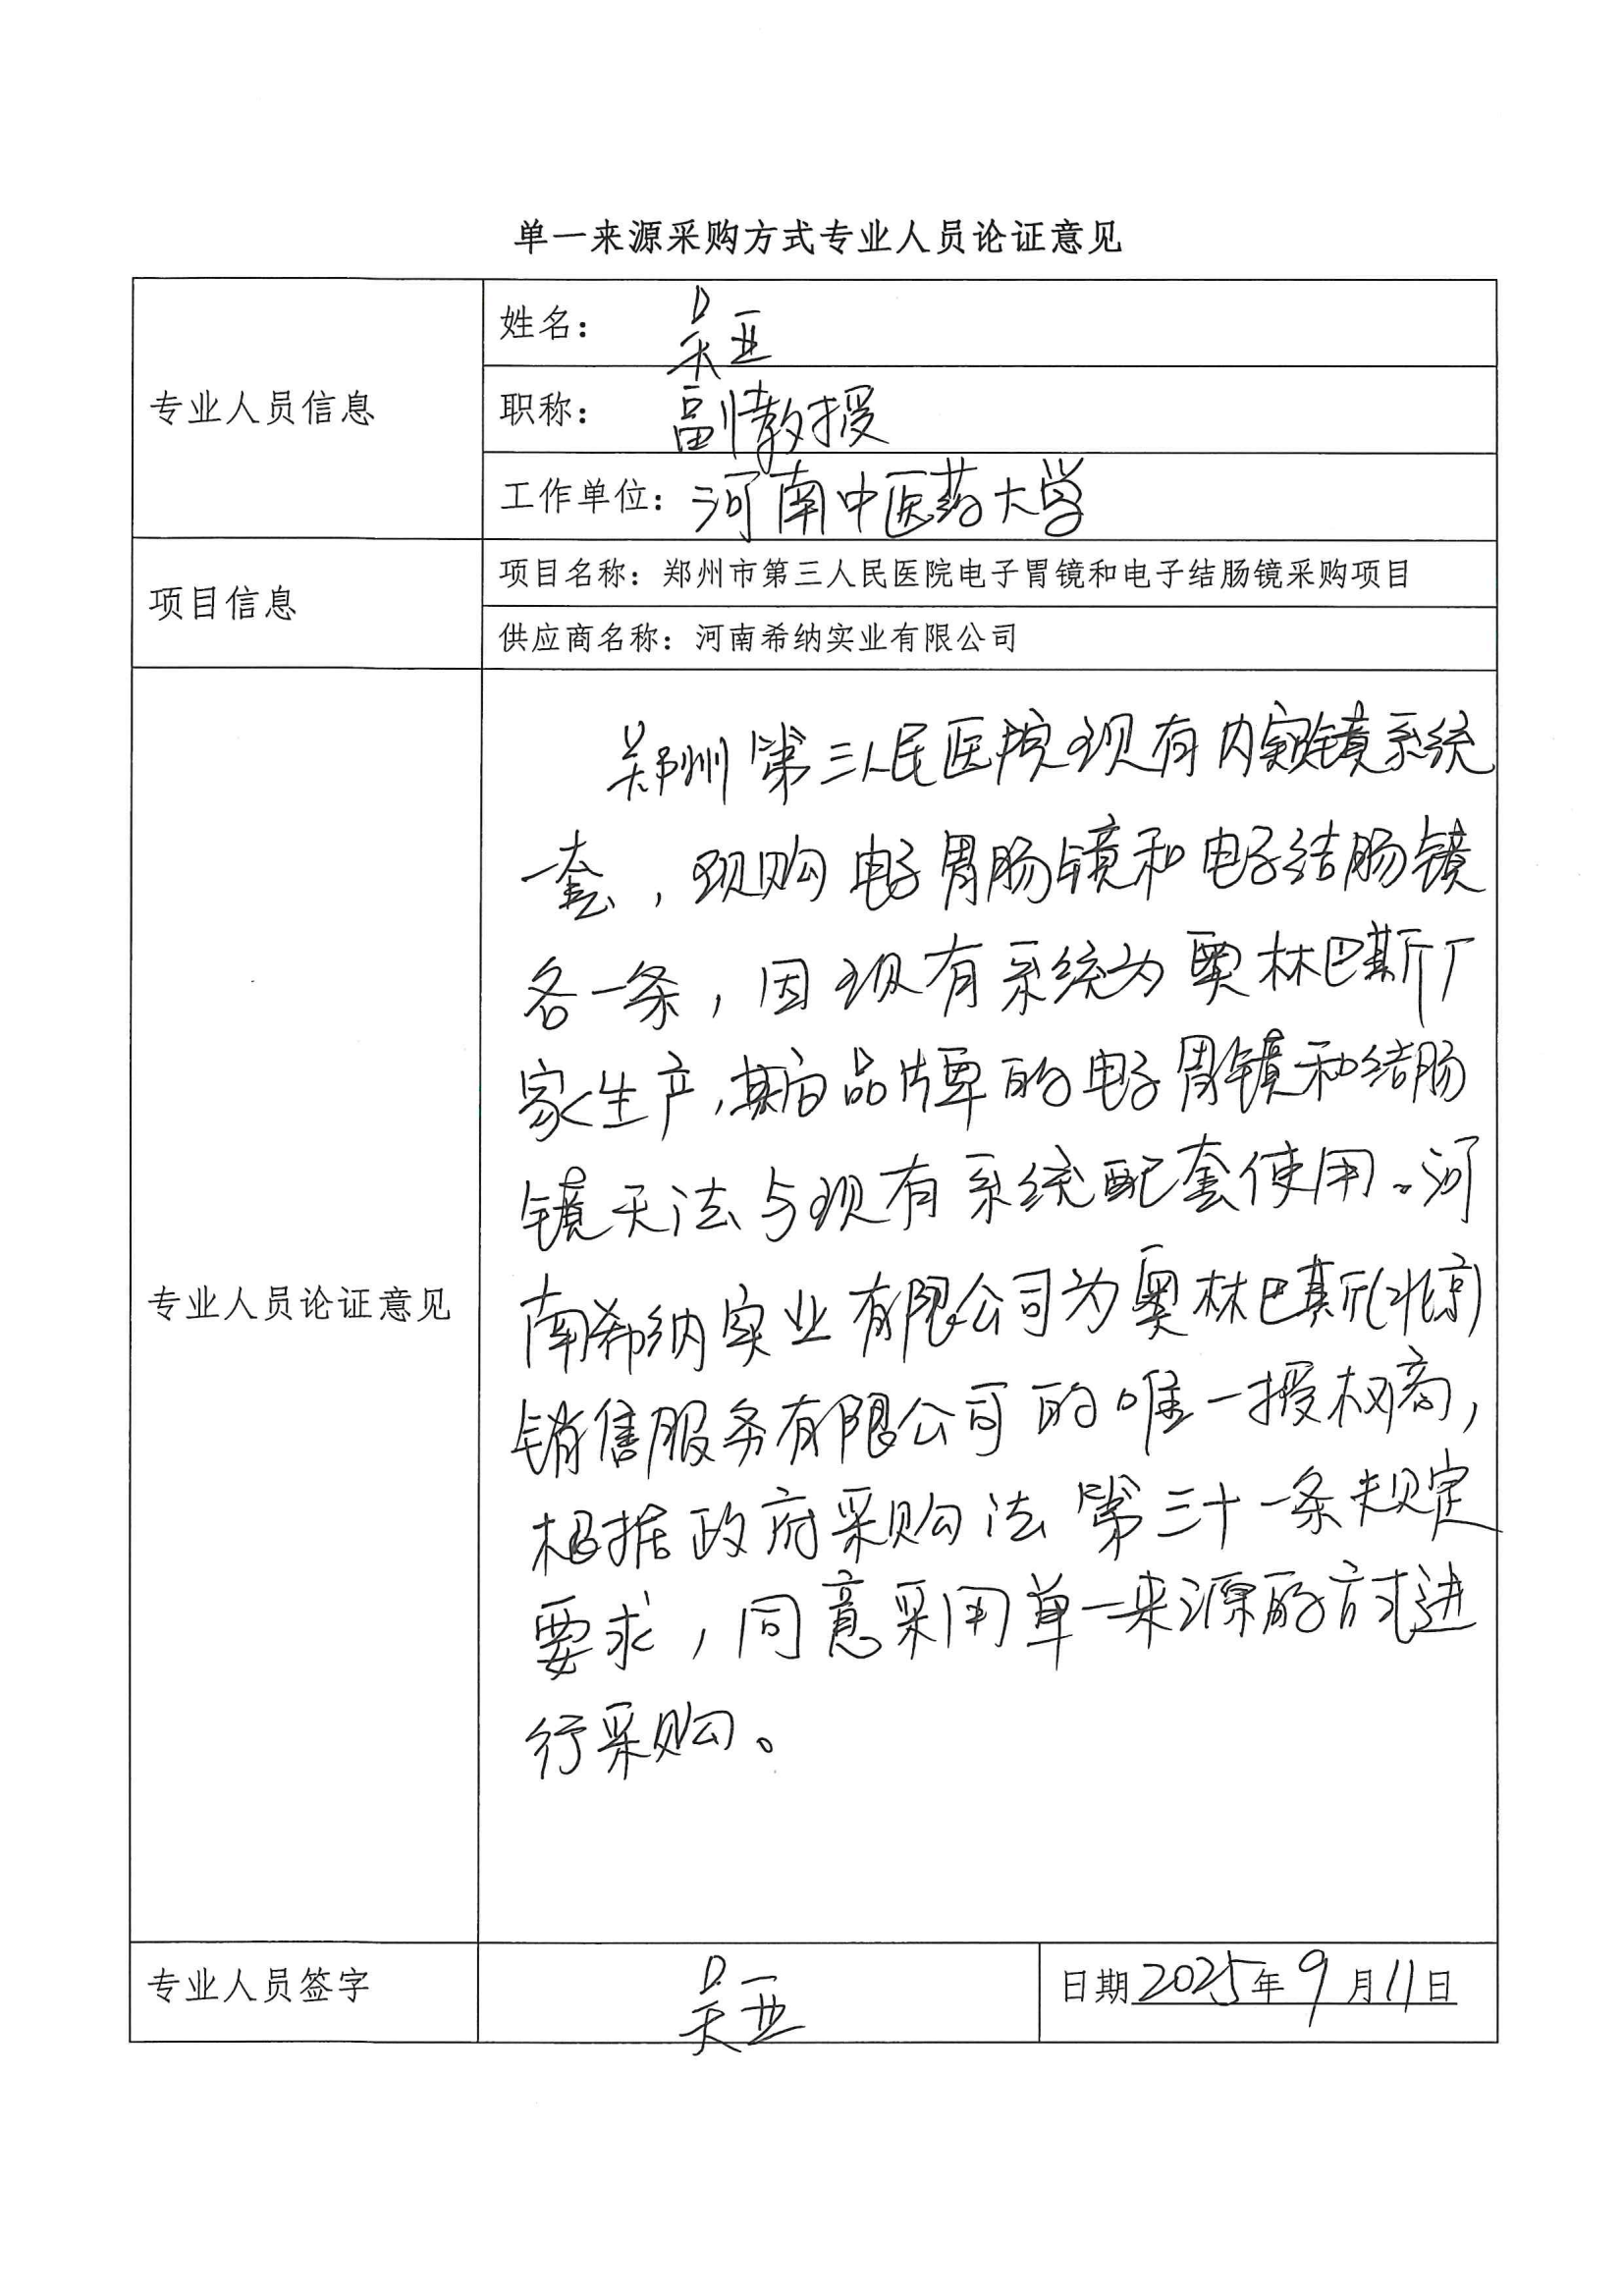 单一来源采购方式专业人员论证意见
专业人员信息
姓名: 吴亚
职称: 副教授
工作单位: 河南中医药大学
项目信息
项目名称: 郑州市第三人民医院电子胃镜和电子结肠镜采购项目
供应商名称: 河南希纳实业有限公司
专业人员论证意见
郑州第三人民医院现有内窥镜系统
一套, 现购电子胃肠镜和电子结肠镜
各一条, 因现有系统为奥林巴斯厂
家生产, 其他品牌的电子胃镜和结肠
镜无法与现有系统配套使用。河
南希纳实业有限公司为奥林巴斯(北京)
销售服务有限公司的唯一授权商,
根据政府采购法第三十一条规定
要求, 同意采用单一来源的方式进
行采购。
专业人员签字
吴亚
日期 2025年9月11日